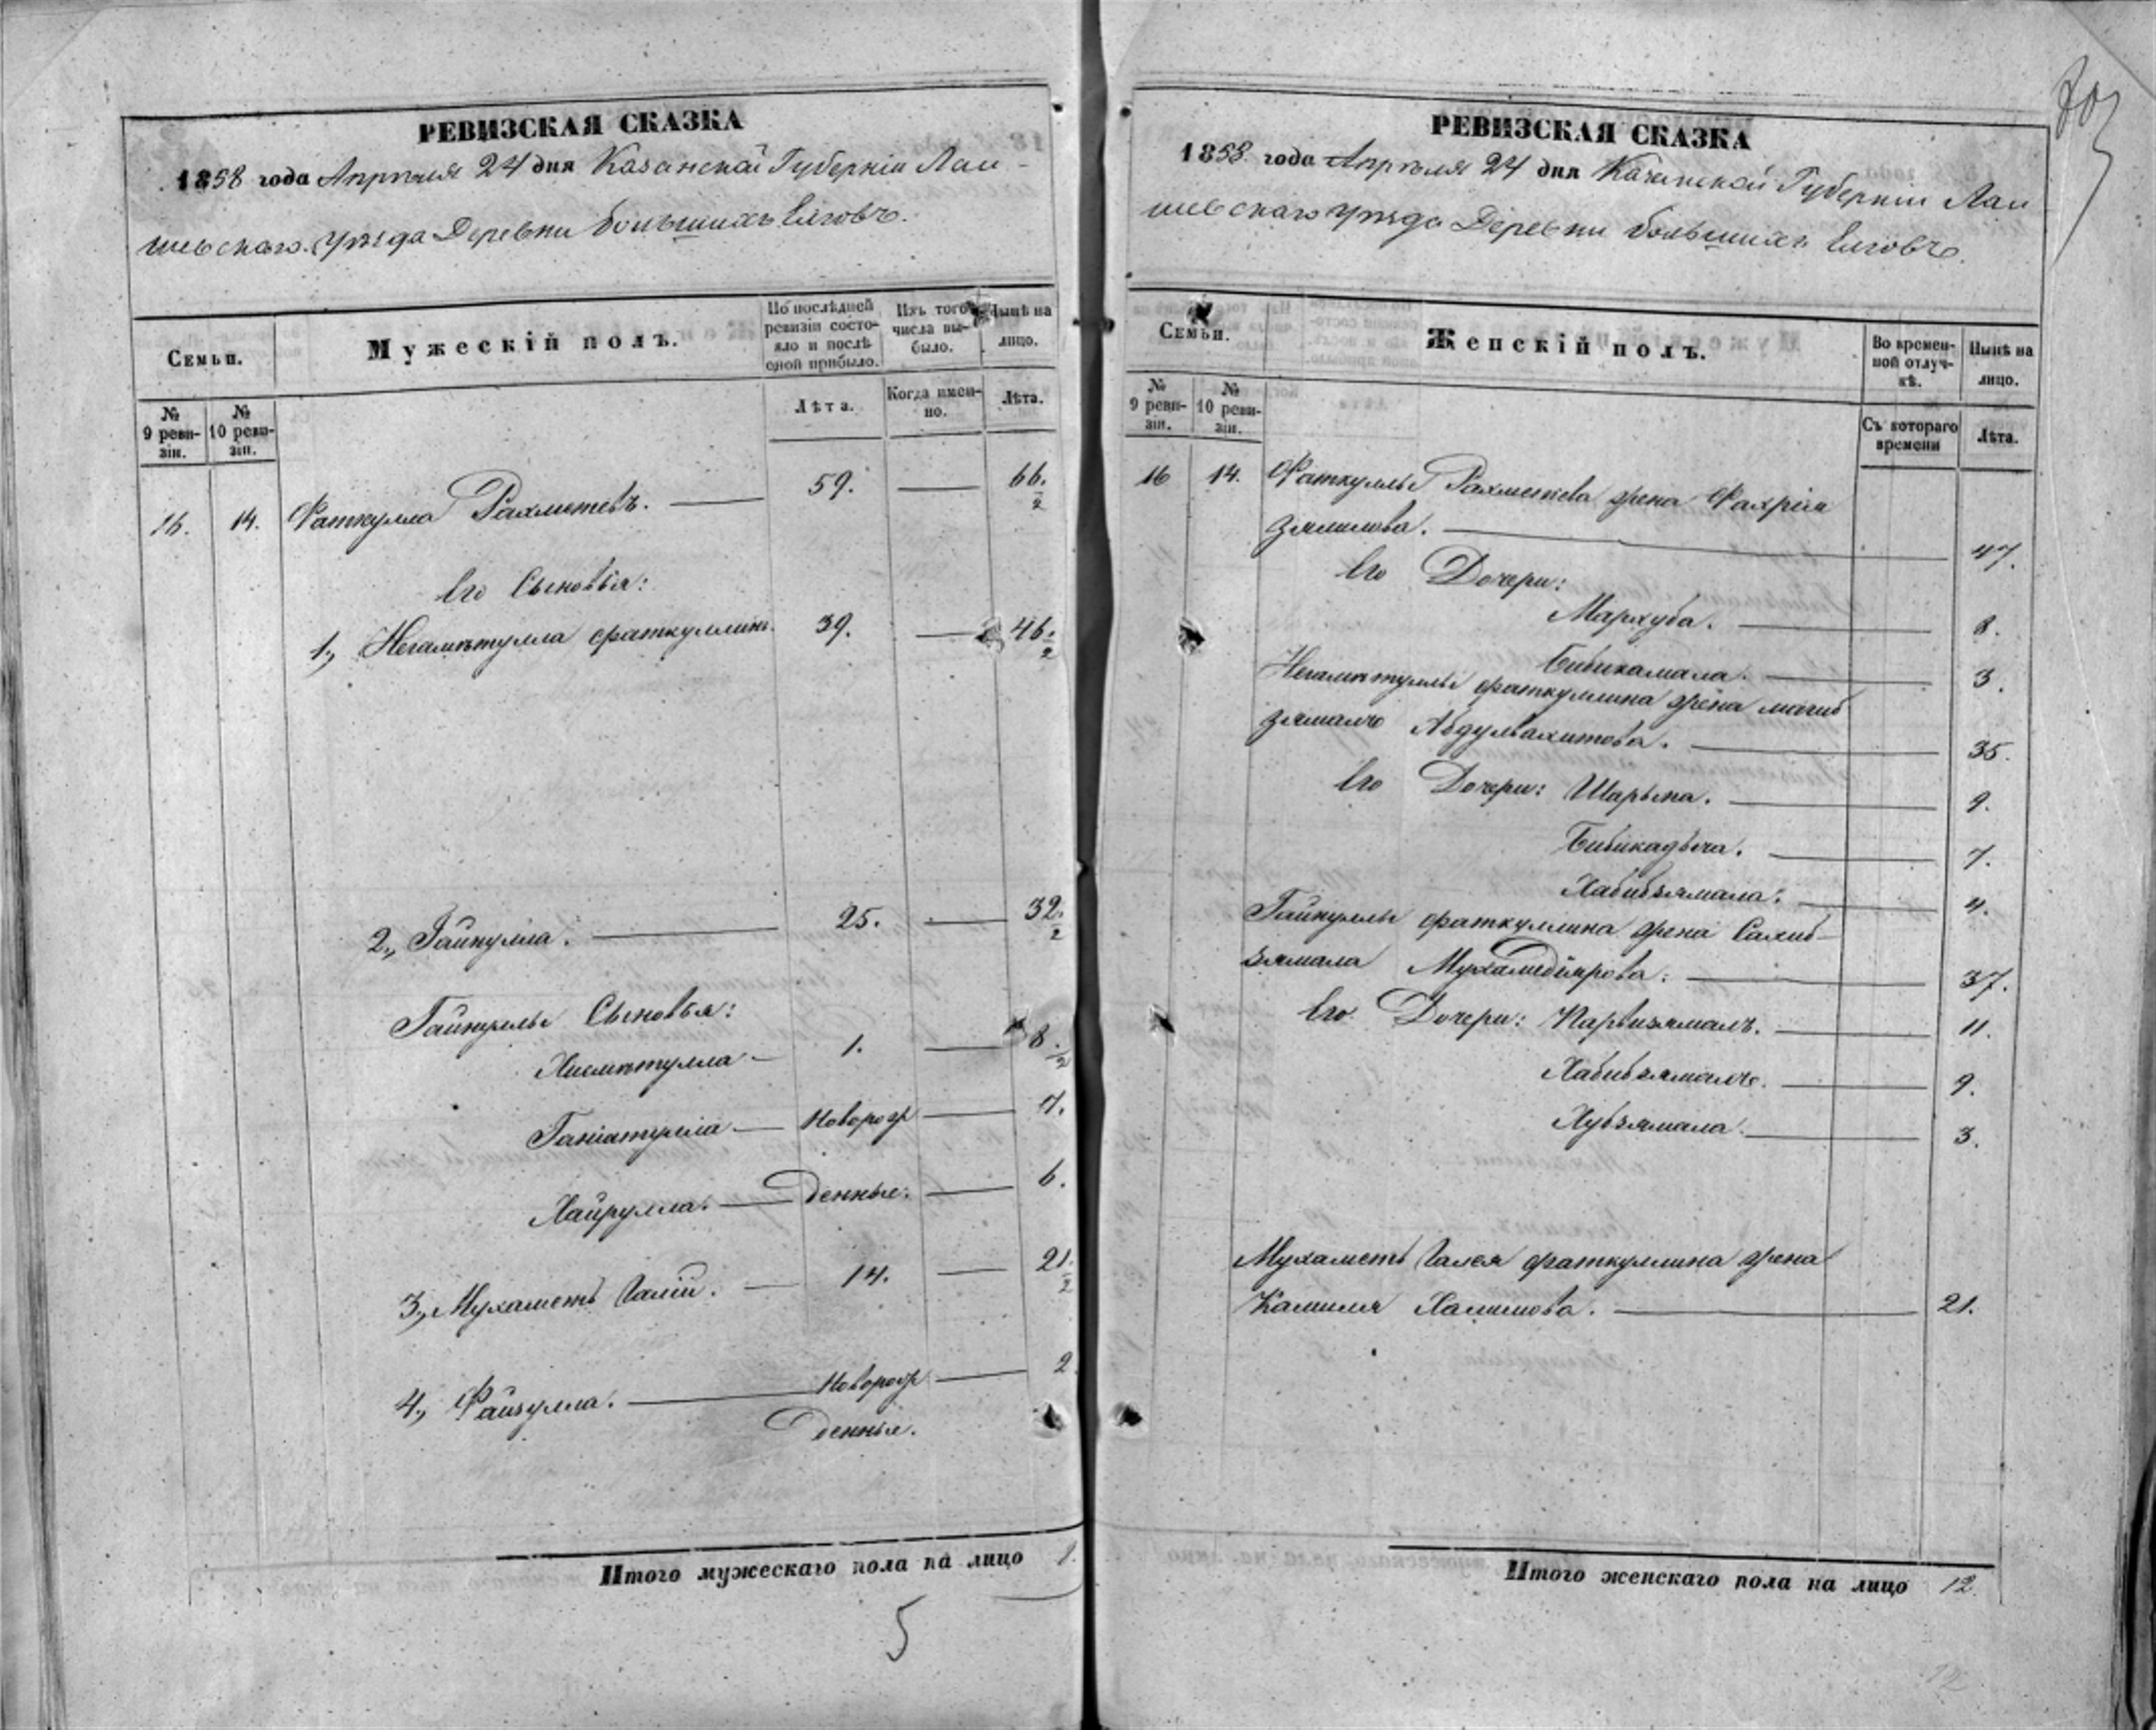 РЕВИЗСКАЯ СКАЗКА
1858 года Апрѣля 24 дня Казанской Губерніи Лаи-
шевскаго уѣзда Деревни большихъ Елговъ.
Семьи.
Мужескій полъ.
По послѣдней ревизіи состо-яло и послѣ оной прибыло.
Изъ того числа вы-было.
Нынѣ на лицо.
№ 9 реви-зіи.
№ 10 реви-зіи.
Лѣта.
Когда имен-но.
Лѣта.
16. 14. Фаткулла Рахметевъ. — 59. — 66. 1/2
Его Сыновья:
1, Негаметулла фаткуллинъ. 39. — 46. 1/2
2, Гайнулла. — 25. — 32. 1/2
Гайнуллы Сыновья:
Хисметулла — 1. — 8. 1/2
Ганіатулла — Новорож — 7.
Хайрулла. — денные. — 6.
3, Мухаметъ Галій. — 14. — 21. 1/2
4, Файзулла. — Новорож — 2
денные.
Итого мужескаго пола на лицо
5
РЕВИЗСКАЯ СКАЗКА
1858. года Апрѣля 24 дня Казанской Губерніи Лаи
шевскаго уѣзда Деревни большихъ Елговъ.
Семьи.
Женскій полъ.
Во времен-ной отлуч-кѣ.
Нынѣ на лицо.
№ 9 реви-зіи.
№ 10 реви-зіи.
Съ котораго времени
Лѣта.
16 14. Фаткуллы Рахметева жена Фахрія
Зялилова. — 47.
Его Дочери:
Мархуба. — 8.
Бибикамала. — 3.
Негаметуллы фаткуллина жена магиб
зямалъ Абдулвахитова. — 35.
Его Дочери: Шарыпа. — 9.
Бибикадыча. — 7.
Хабибзямала. — 4.
Гайнуллы фаткуллина жена Сахиб-
зямала Мухамедіярова: — 37.
Его Дочери: Парвизямалъ. — 11.
Хабибзямалъ. — 9.
Хубзямала. — 3.
Мухаметъ Галея фаткуллина жена
Камиля Халитова. — 21.
Итого женскаго пола на лицо 12.